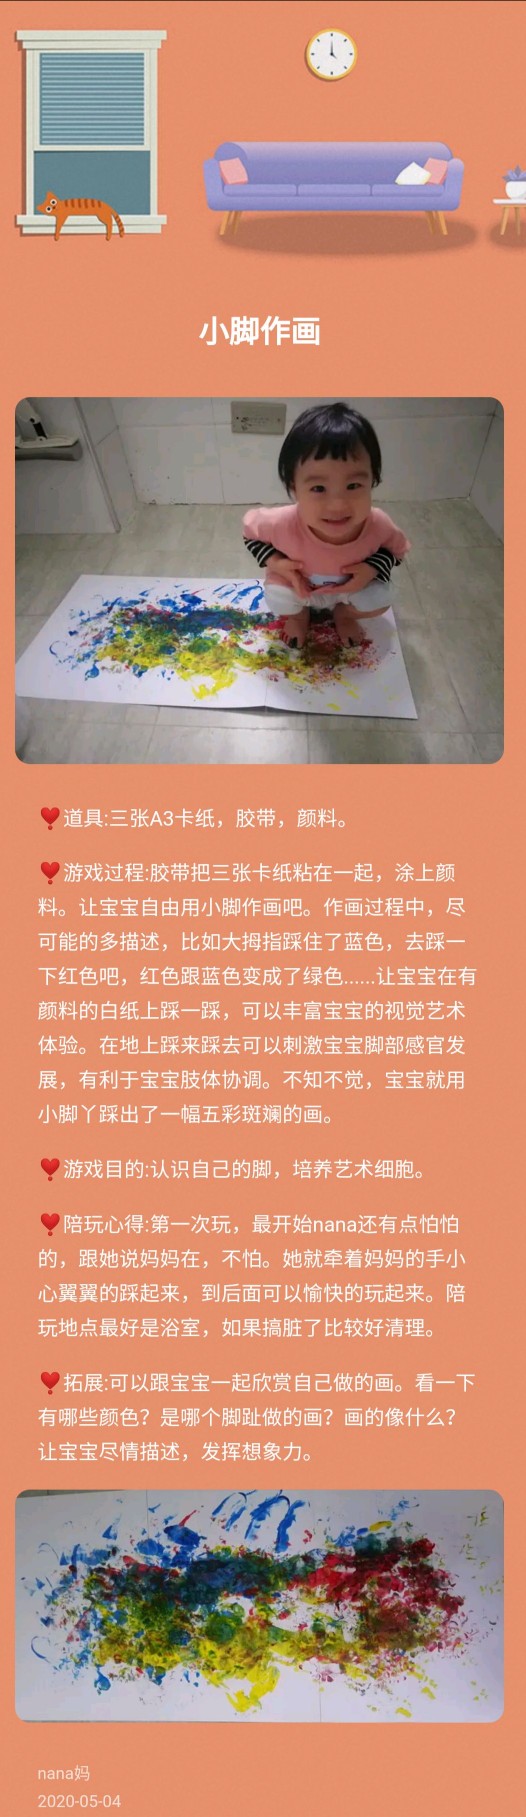 小脚作画
❣️道具:三张A3卡纸，胶带，颜料。
❣️游戏过程:胶带把三张卡纸粘在一起，涂上颜
料。让宝宝自由用小脚作画吧。作画过程中，尽
可能的多描述，比如大拇指踩住了蓝色，去踩一
下红色吧，红色跟蓝色变成了绿色......让宝宝在有
颜料的白纸上踩一踩，可以丰富宝宝的视觉艺术
体验。在地上踩来踩去可以刺激宝宝脚部感官发
展，有利于宝宝肢体协调。不知不觉，宝宝就用
小脚丫踩出了一幅五彩斑斓的画。
❣️游戏目的:认识自己的脚，培养艺术细胞。
❣️陪玩心得:第一次玩，最开始nana还有点怕怕
的，跟她说妈妈在，不怕。她就牵着妈妈的手小
心翼翼的踩起来，到后面可以愉快的玩起来。陪
玩地点最好是浴室，如果搞脏了比较好清理。
❣️拓展:可以跟宝宝一起欣赏自己做的画。看一下
有哪些颜色？是哪个脚趾做的画？画的像什么？
让宝宝尽情描述，发挥想象力。
nana妈
2020-05-04